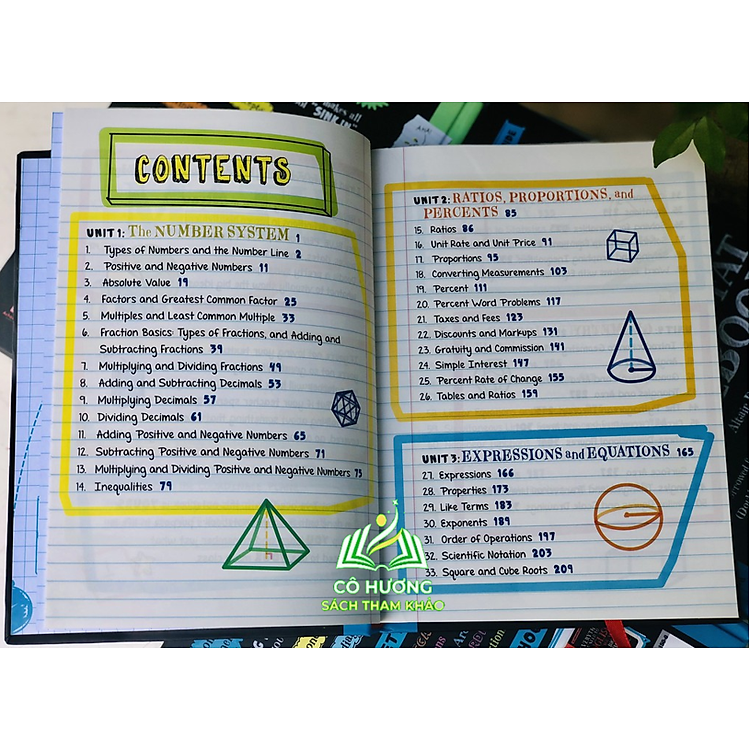 makes all
"SINK IN"
AHA!
CONTENTS
UNIT 1: The NUMBER SYSTEM 1
1. Types of Numbers and the Number Line 2
2. Positive and Negative Numbers 11
3. Absolute Value 19
4. Factors and Greatest Common Factor 25
5. Multiples and Least Common Multiple 33
6. Fraction Basics: Types of Fractions, and Adding and
Subtracting Fractions 39
7. Multiplying and Dividing Fractions 49
8. Adding and Subtracting Decimals 53
9. Multiplying Decimals 57
10. Dividing Decimals 61
11. Adding Positive and Negative Numbers 65
12. Subtracting Positive and Negative Numbers 71
13. Multiplying and Dividing Positive and Negative Numbers 75
14. Inequalities 79
h
UNIT 2: RATIOS, PROPORTIONS, and
PERCENTS 85
15. Ratios 86
16. Unit Rate and Unit Price 91
17. Proportions 95
18. Converting Measurements 103
19. Percent 111
20. Percent Word Problems 117
21. Taxes and Fees 123
22. Discounts and Markups 131
23. Gratuity and Commission 141
24. Simple Interest 147
25. Percent Rate of Change 155
26. Tables and Ratios 159
UNIT 3: EXPRESSIONS and EQUATIONS 165
27. Expressions 166
28. Properties 173
29. Like Terms 183
30. Exponents 189
31. Order of Operations 197
32. Scientific Notation 203
33. Square and Cube Roots 209
CÔ HƯƠNG
SÁCH THAM KHẢO